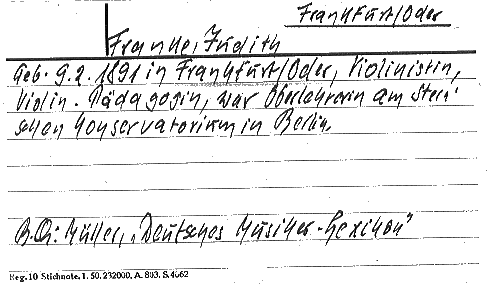 Frankfurt/Oder
Franke, Judith
Geb. 9.2.1891 in Frankfurt/Oder, Violinistin,
Violin-Pädagogin, war Oberlehrerin am Stern'
schen Konservatorium in Berlin.
Müller, „Deutsches Musiker-Lexikon"
Reg. 10 Stichnote. 1. 50. 232000. A. 803. S. 4662